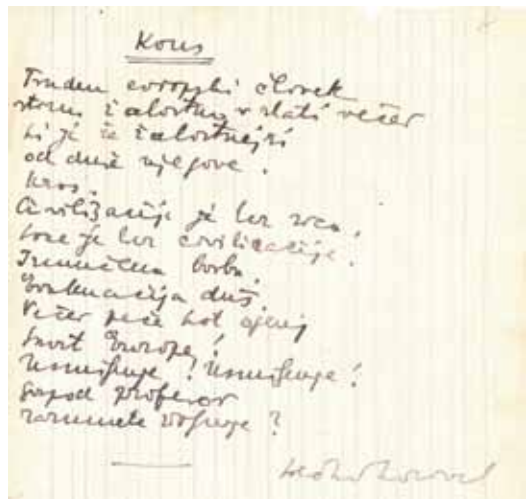 Kons
Truden evropski človek
strmi žalostno v zlati večer
ki je še žalostnejši
od duše njegove.
Kras.
Civilizacija je brez srca.
Srce je brez civilizacije.
Izmučena borba.
Evakuacija duš.
Večer peče kot ogenj
Smrt Evrope!
Usmiljenje! Usmiljenje!
Gospod profesor
razumete življenje?
Srečko Kosovel